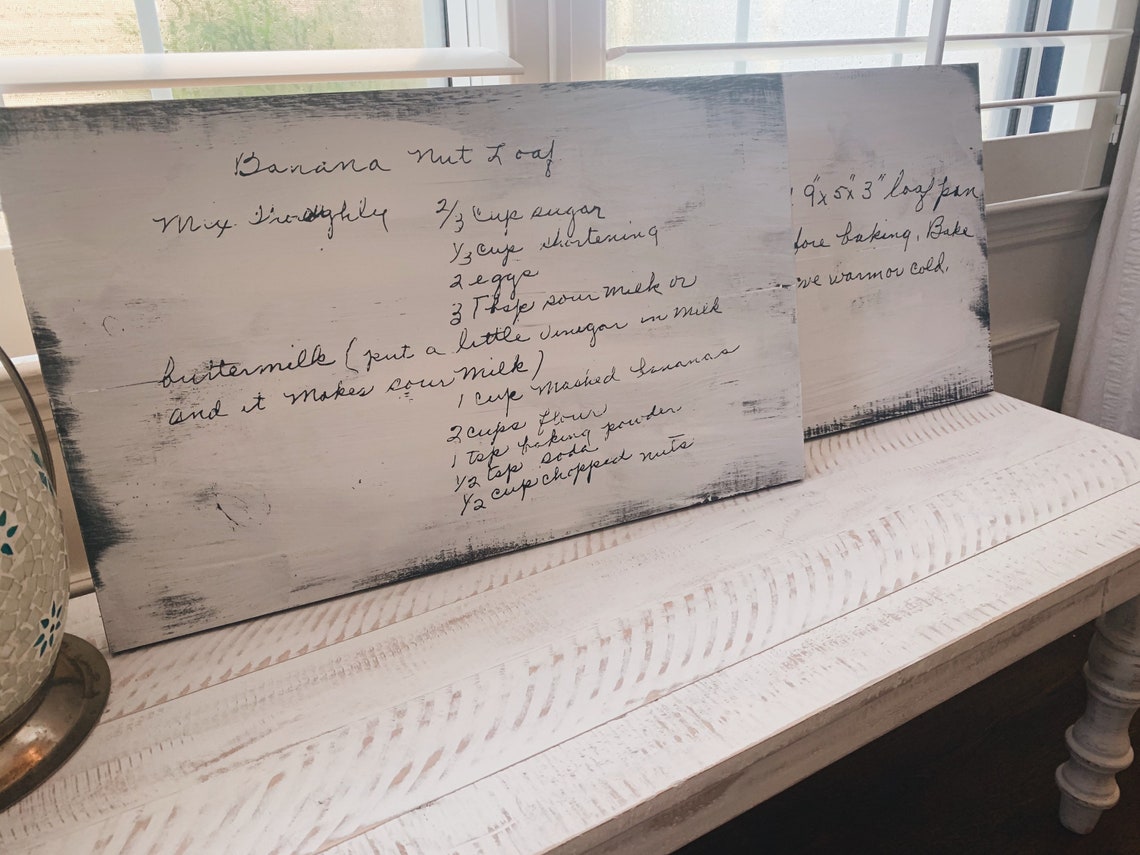 Banana Nut Loaf
Mix Thoroughly 2/3 Cup sugar
1/3 cup shortening
2 eggs
3 Tbsp sour milk or
buttermilk (put a little vinegar in milk
and it makes sour milk)
1 cup mashed bananas
2 cups flour
1 tsp baking powder
1/2 tsp soda
1/2 cup chopped nuts
9"x5"x3" loaf pan
fore baking. Bake
ve warm or cold.